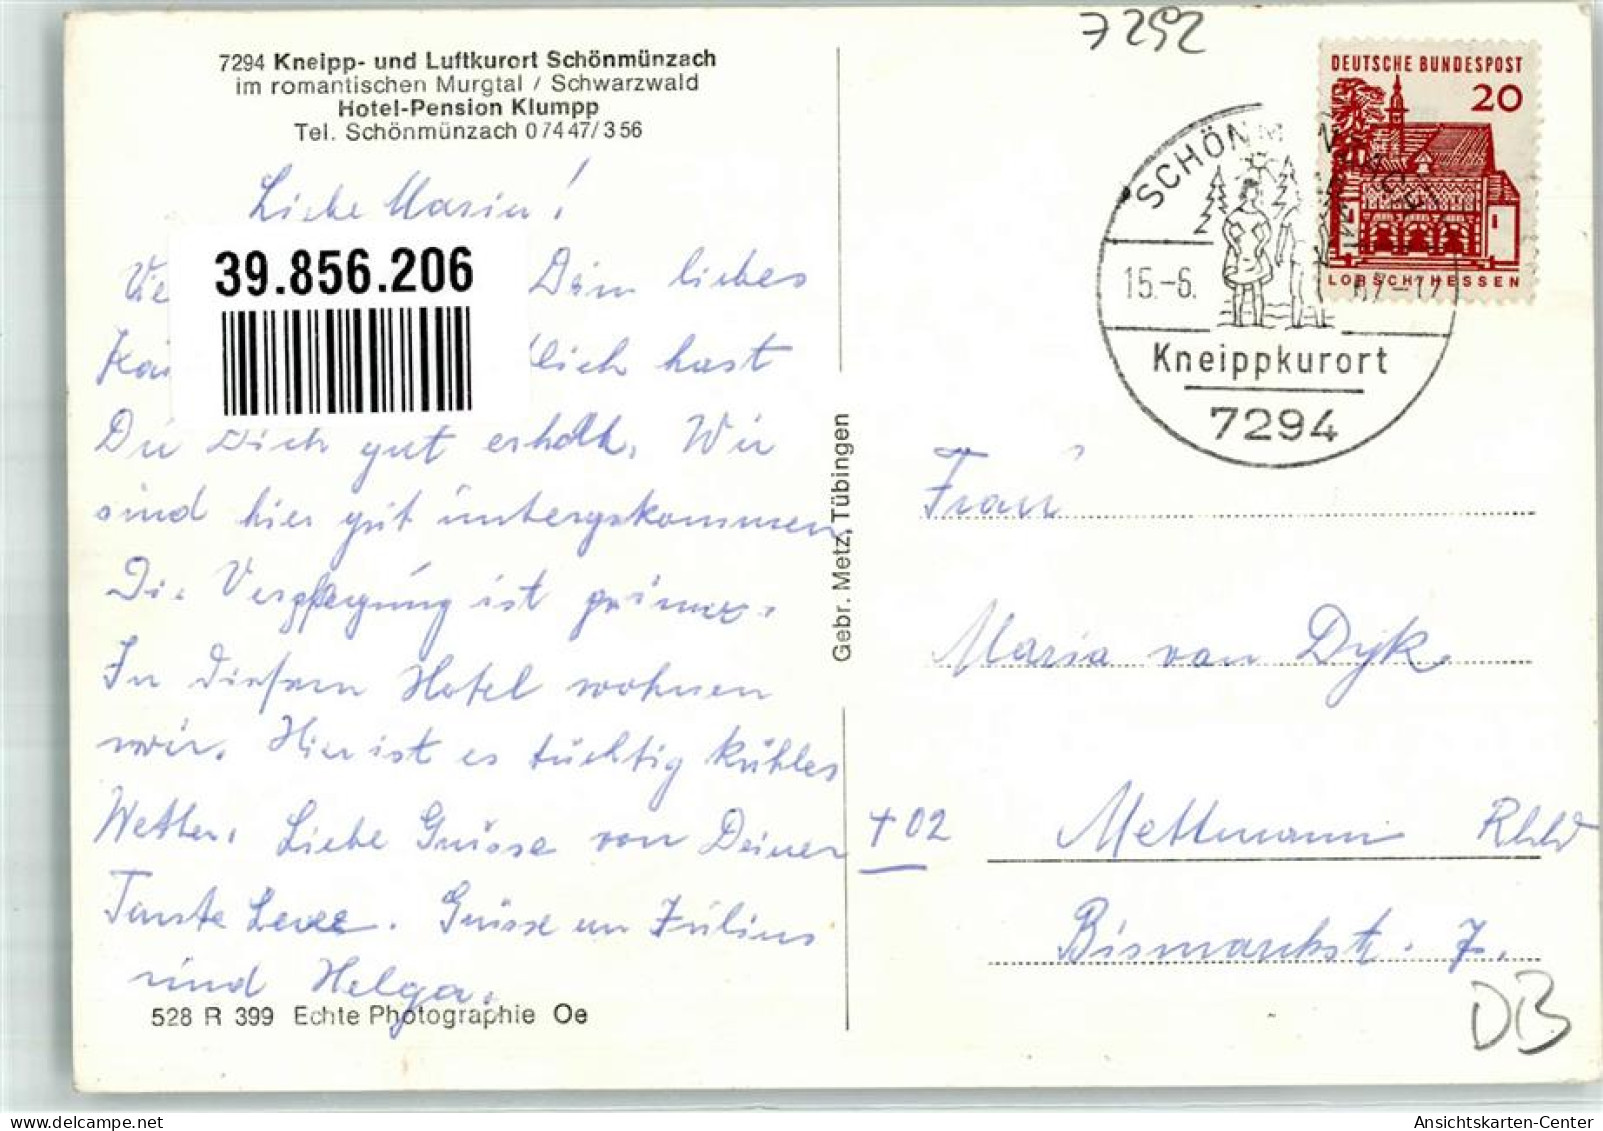 7292
7294 Kneipp- und Luftkurort Schönmünzach
im romantischen Murgtal / Schwarzwald
Hotel-Pension Klumpp
Tel. Schönmünzach 07447/356
Liebe Maria!
Dein liebes
hast
Du Dich gut erholt. Wir
sind hier gut untergekommen
Die Verpflegung ist prima.
In diesem Hotel wohnen
wir. Hier ist es tüchtig kühles
Wetter. Liebe Grüsse von Deiner
Tante. Grüsse an Julius
und Helga.
528 R 399 Echte Photographie Oe
39.856.206
Gebr. Metz, Tübingen
DEUTSCHE BUNDESPOST
20
LORSCH/HESSEN
SCHÖNMÜNZACH
15.-6. 67-17
Kneippkurort
7294
Frau
Maria van Dyk
402 Mettmann Rhld
Bismarckstr. 7.
DB
Ansichtskarten-Center